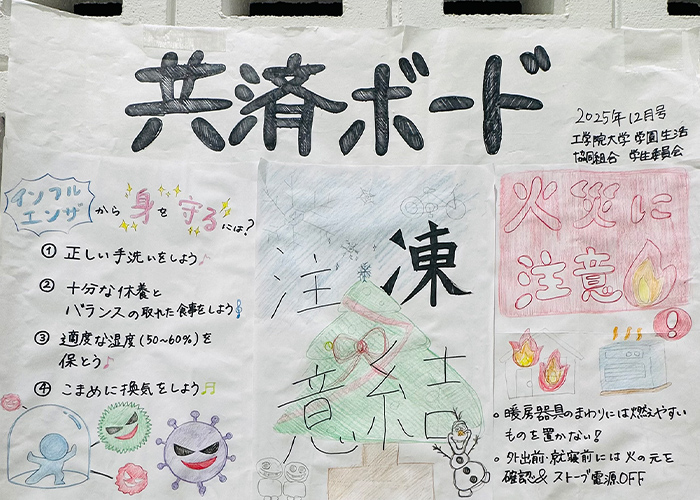 共済ボード
2025年12月号
工学院大学 学園生活
協同組合 学生委員会
インフル
エンザから身を守るには?
① 正しい手洗いをしよう♪
② 十分な休養と
バランスの取れた食事をしよう
③ 適度な湿度(50~60%)を
保とう♪
④ こまめに換気をしよう♬
凍結
注意
火災に
注意
。暖房器具のまわりには燃えやすい
ものを置かない!
。外出前・就寝前には火の元を
確認&ストーブ電源OFF